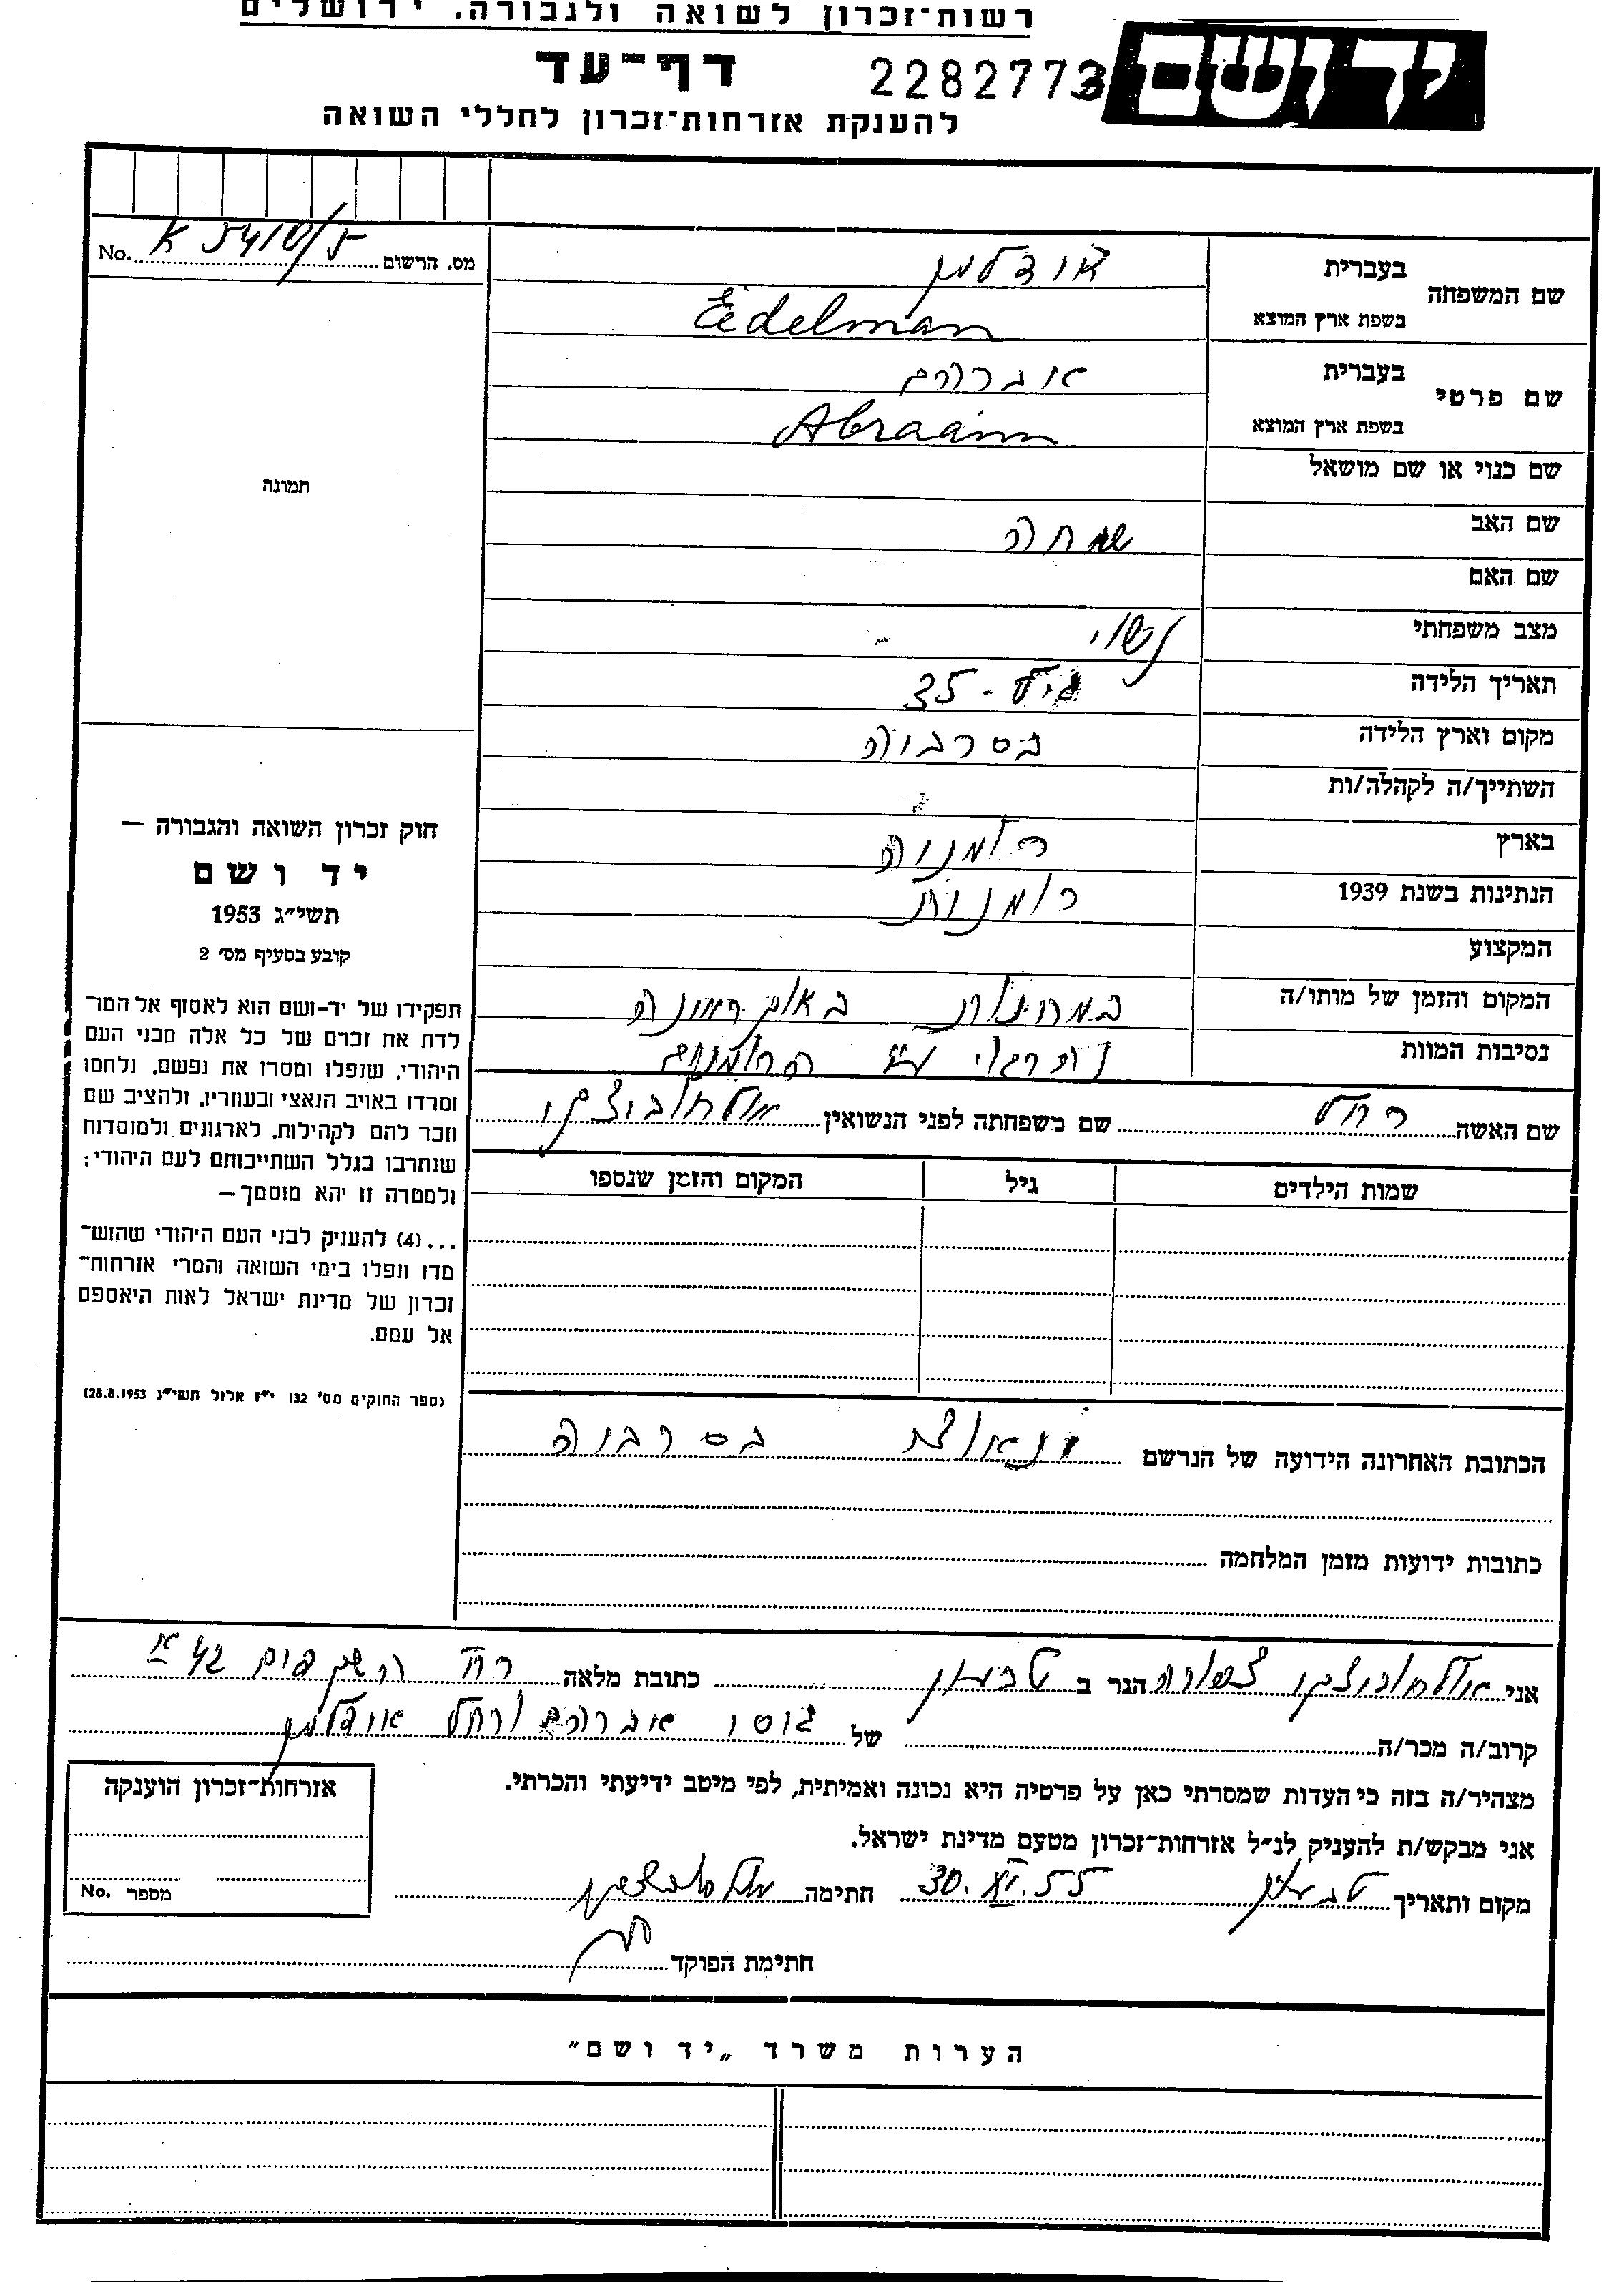 רשות-זכרון לשואה ולגבורה, ירושלים
יד ושם
דף-עד
2282773
להענקת אזרחות-זכרון לחללי השואה
מס. הרשום K 5410/5 No.
שם המשפחה
בעברית אידלמן
בשפת ארץ המוצא Eidelman
שם פרטי
בעברית אברהם
בשפת ארץ המוצא Abraam
שם כנוי או שם מושאל
תמונה
שם האב שמחה
שם האם
מצב משפחתי נשוי
תאריך הלידה גיל - 35
מקום וארץ הלידה בסרביה
השתייך/ה לקהלה/ות
בארץ רומניה
הנתינות בשנת 1939 רומנית
המקצוע
המקום והזמן של מותו/ה
נסיבות המוות נהרג ע"י הרומנים
שם האשה רחל שם משפחתה לפני הנשואין
שמות הילדים גיל המקום והזמן שנספו
חוק זכרון השואה והגבורה —
יד ושם
תשי״ג 1953
קובע בסעיף מס׳ 2
תפקידו של יד-ושם הוא לאסוף אל המו־
לדת את זכרם של כל אלה מבני העם
היהודי, שנפלו ומסרו את נפשם, נלחמו
ומרדו באויב הנאצי ובעוזריו, ולהציב שם
וזכר להם לקהילות, לארגונים ולמוסדות
שנחרבו בגלל השתייכותם לעם היהודי;
ולמטרה זו יהא מוסמך—
...(4) להעניק לבני העם היהודי שהוש־
מדו ונפלו בימי השואה והמרי אזרחות־
זכרון של מדינת ישראל לאות היאספם
אל עמם.
(ספר החוקים מס׳ 132 י״ז אלול תשי״ג 28.8.1953)
הכתובת האחרונה הידועה של הנרשם בסרביה
כתובות ידועות מזמן המלחמה
אני הגר ב טבעון כתובת מלאה רח' השקדים 42 א
קרוב/ה מכר/ה של גיסי אברהם ורחל אידלמן
מצהיר/ה בזה כי העדות שמסרתי כאן על פרטיה היא נכונה ואמיתית, לפי מיטב ידיעתי והכרתי.
אני מבקש/ת להעניק לנ״ל אזרחות-זכרון מטעם מדינת ישראל.
מקום ותאריך טבעון 30.XI.55 חתימה
חתימת הפוקד
אזרחות-זכרון הוענקה
מספר No.
הערות משרד „יד ושם״